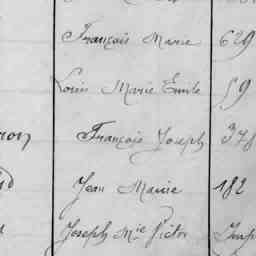 François Marie 629
Louis Marie Emile 59
François Joseph 348
Jean Marie 182
Joseph Mie Victor